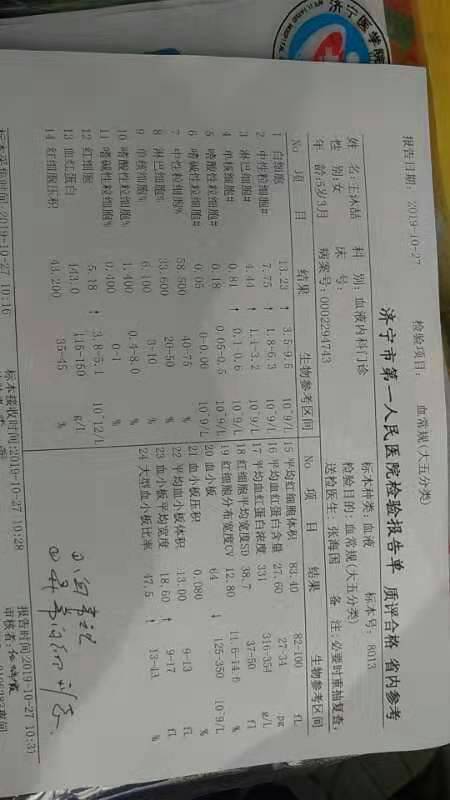 济宁医学院
济宁市第一人民医院检验报告单 质评合格 省内参考
报告日期: 2019-10-27 检验项目: 血常规(大五分类) 标本种类:血液 标本号: 8013
姓 名:王沐喆 科 别:血液内科门诊 检验目的:血常规(大五分类)
性 别:女 床 号: 送检医生:张海国 备 注:必要时重抽复查,
年 龄:5岁3月 病案号:0002294743
No 项 目 结果 生物参考区间
1 白细胞 13.23 ↑ 3.5-9.5 10^9/L
2 中性粒细胞# 7.75 ↑ 1.8-6.3 10^9/L
3 淋巴细胞# 4.44 ↑ 1.1-3.2 10^9/L
4 单核细胞# 0.81 ↑ 0.1-0.6 10^9/L
5 嗜酸性粒细胞# 0.18 0.05-0.5 10^9/L
6 嗜碱性粒细胞# 0.05 10^9/L
7 中性粒细胞% 58.500 40-75 %
8 淋巴细胞% 33.600 20-50 %
9 单核细胞% 6.100 3-10 %
10 嗜酸性粒细胞% 1.400 0.4-8.0 %
11 嗜碱性粒细胞% 0.400 0-1 %
12 红细胞 5.18 ↑ 3.8-5.1 10^12/L
13 血红蛋白 143.0 115-150 g/L
14 红细胞压积 43.200 35-45 %
No 项 目 结果 生物参考区间
15 平均红细胞体积 83.40 82-100 fL
16 平均血红蛋白含量 27.60 27-34 pg
17 平均血红蛋白浓度 331 316-354 g/L
18 红细胞平均宽度SD 38.7 37-50 fl
19 红细胞分布宽度CV 12.80 11.6-14.6 %
20 血小板 64 ↓ 125-350 10^9/L
21 血小板压积 0.080 %
22 平均血小板体积 13.00 9-13 fL
23 血小板平均宽度 18.60 ↑ 9-17 fL
24 大型血小板比率 47.5 ↑ 13-43 %
标本采集时间:2019-10-27 10:16 标本接收时间:2019-10-27 10:28 报告时间:2019-10-27 10:3
审核者: